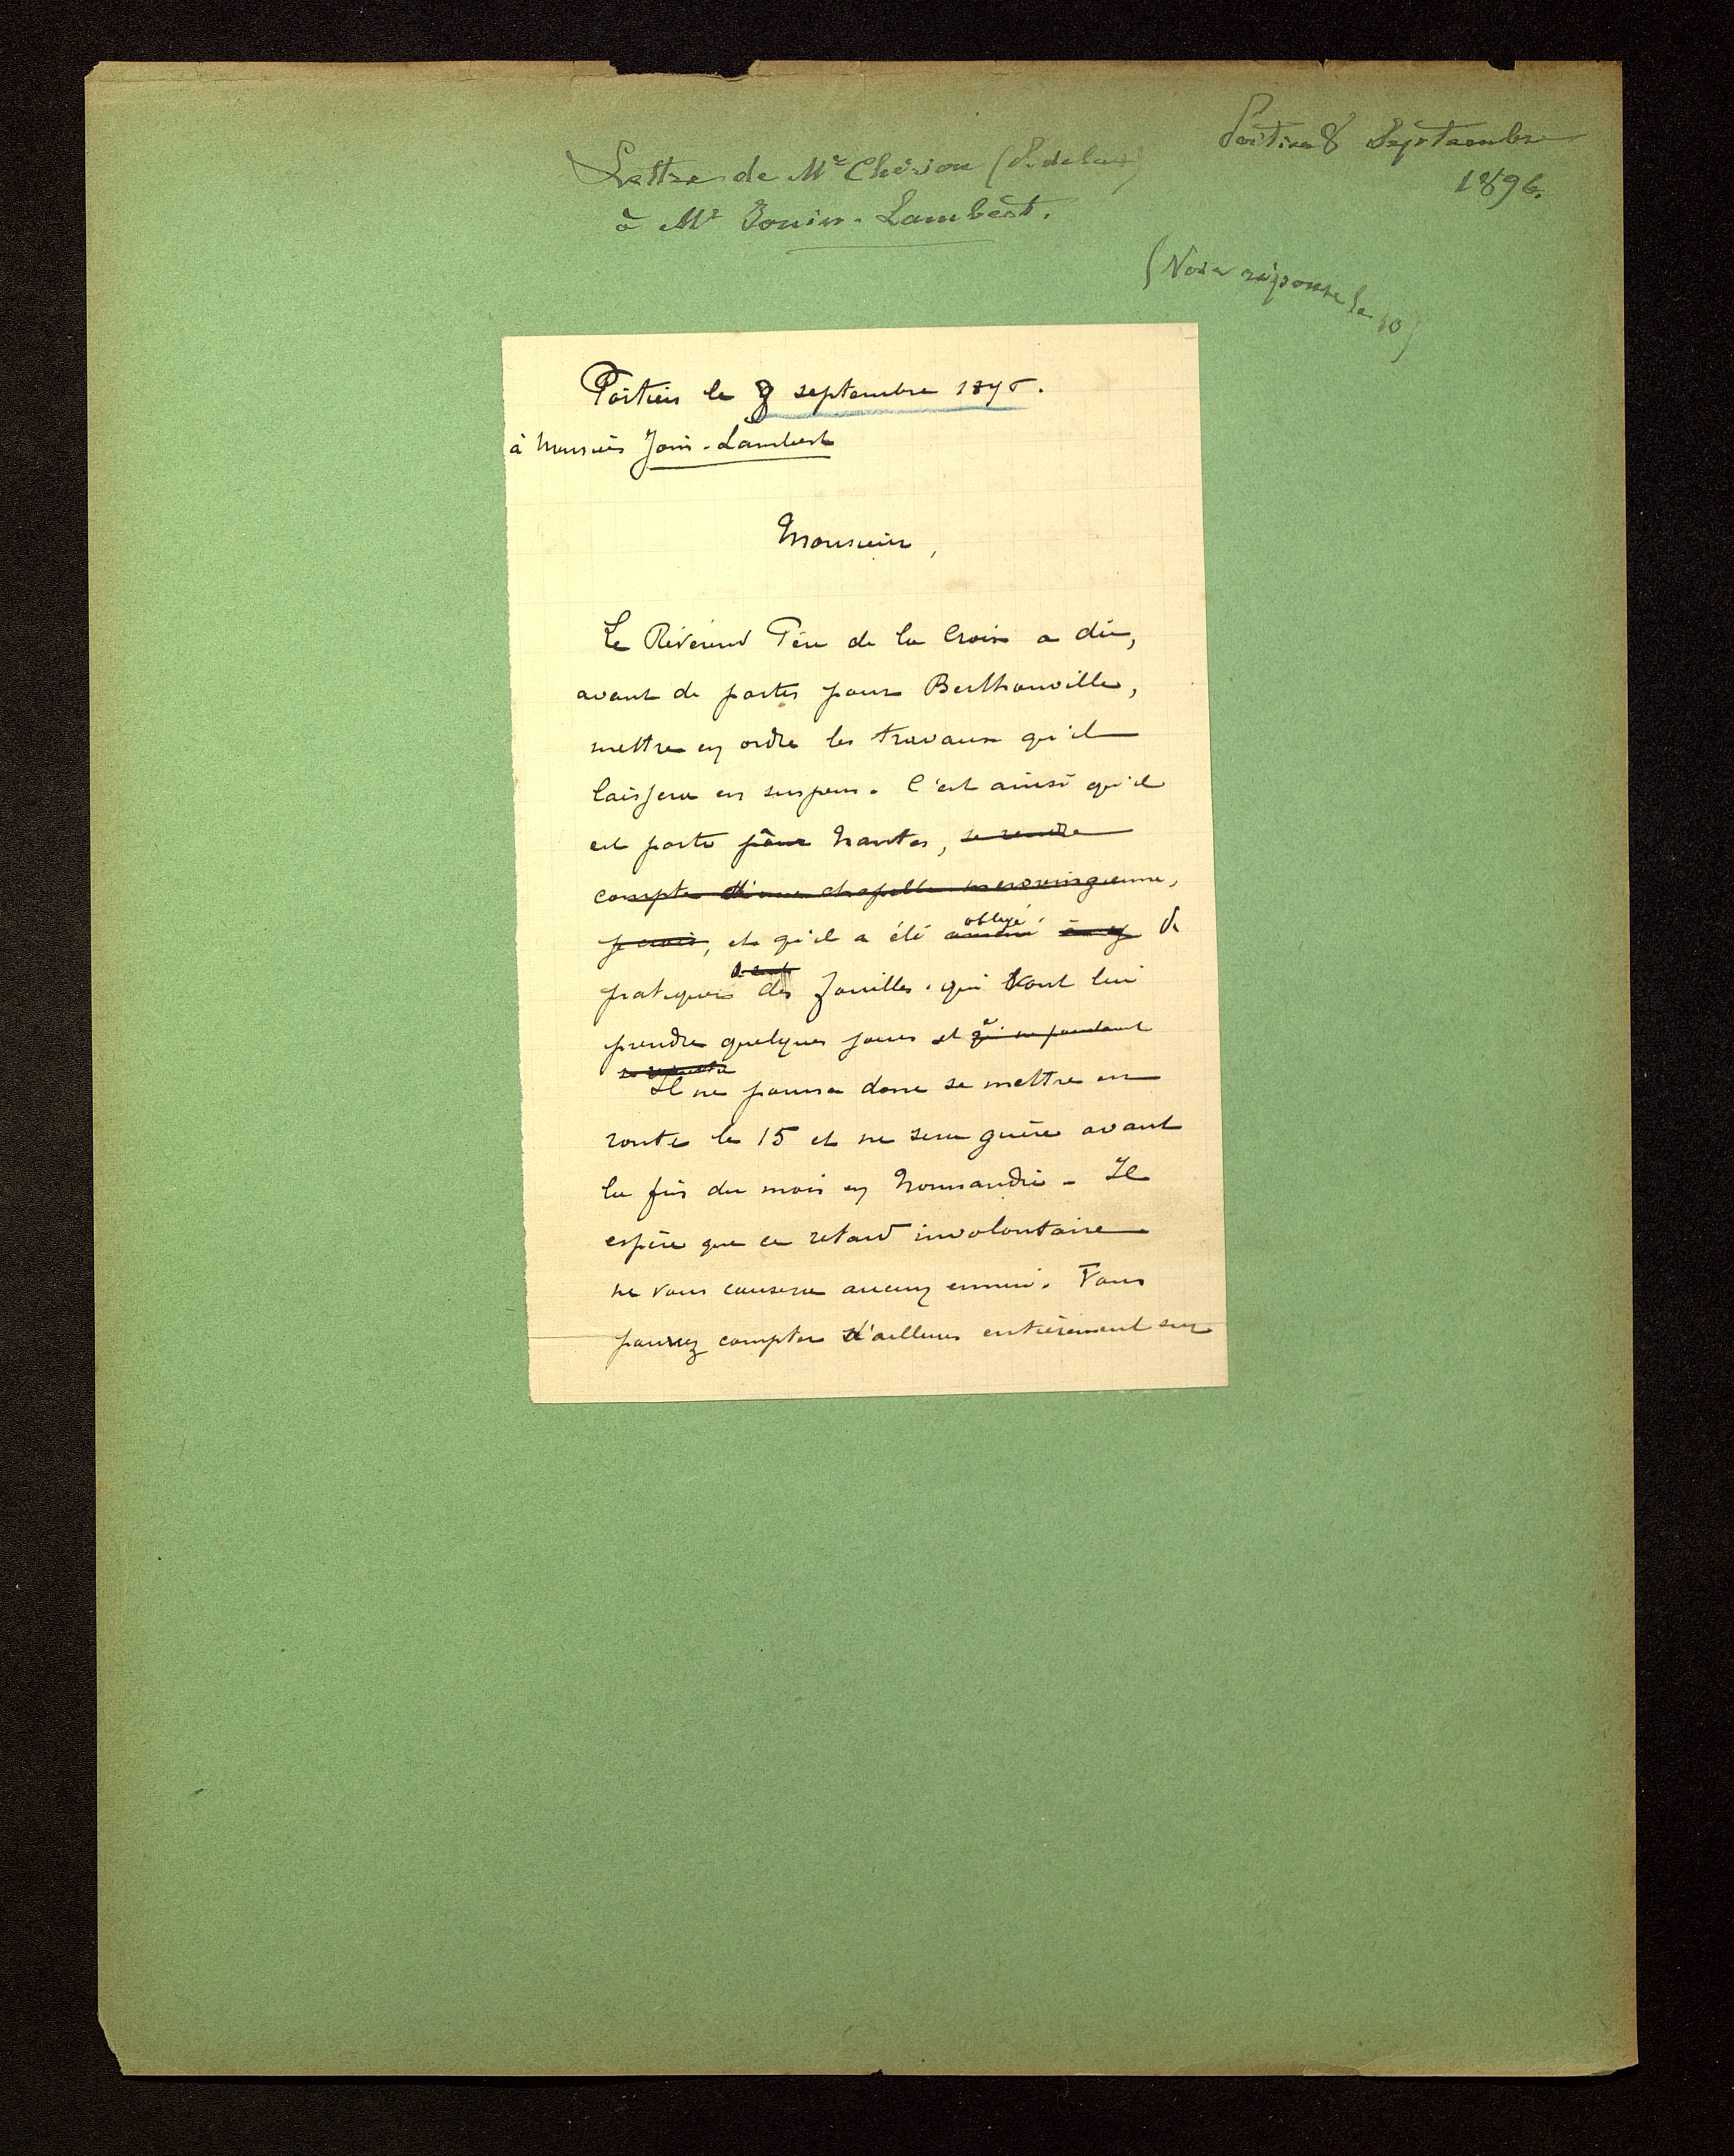 Poitiers 8 Septembre
1896.
Lettre de Mr Chérion (P. de la +)
à Mr Jouin-Lambert.
(Voir réponse le 10)
Poitiers le 8 septembre 1896.
à Monsieur Join-Lambert
Monsieur,
Le Révérend Père de la Croix a dû,
avant de partir pour Berthouville,
mettre en ordre les travaux qu'il
laissera en suspens. C'est ainsi qu'il
est parti pour Nantes, se rendre
compte d'une chapelle merovingienne,
je crois, et qu'il a été amené obligé à y de
pratiquer des fouilles qui vont lui
prendre quelques jours et
Il ne pourra donc se mettre en
route le 15 et ne sera guère avant
la fin du mois en Normandie - Il
espère que ce retard involontaire
ne vous causera aucun ennui. Vous
pourrez compter d'ailleurs entièrement sur